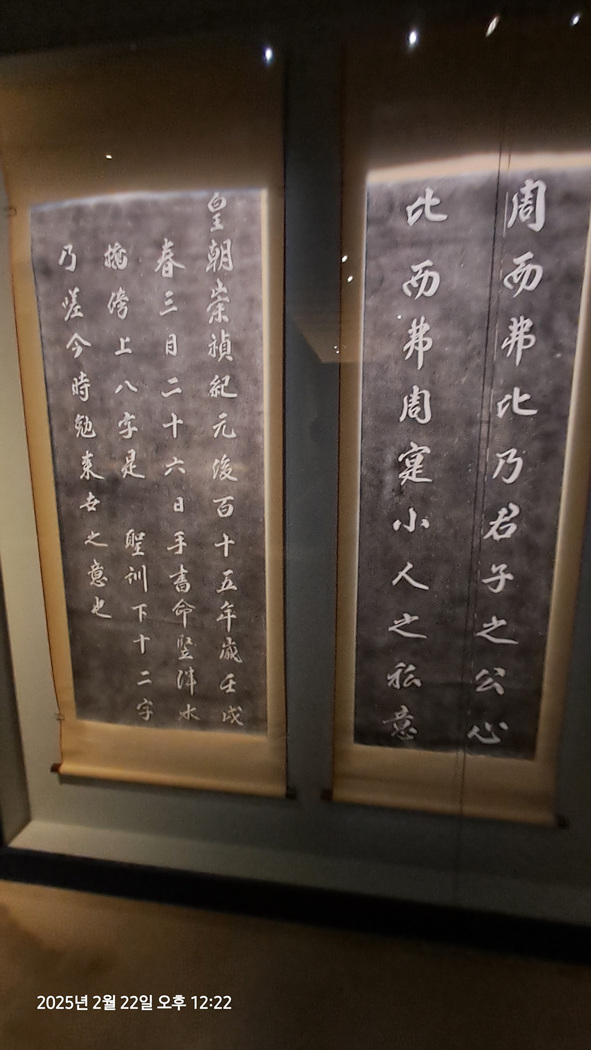 周而弗比乃君子之公心
比而弗周寔小人之私意
皇朝崇禎紀元後百十五年歲壬戌
春三月二十六日手書命竪泮水
橋傍上八字是 聖訓下十二字
乃嗟今時勉來世之意也
2025년 2월 22일 오후 12:22